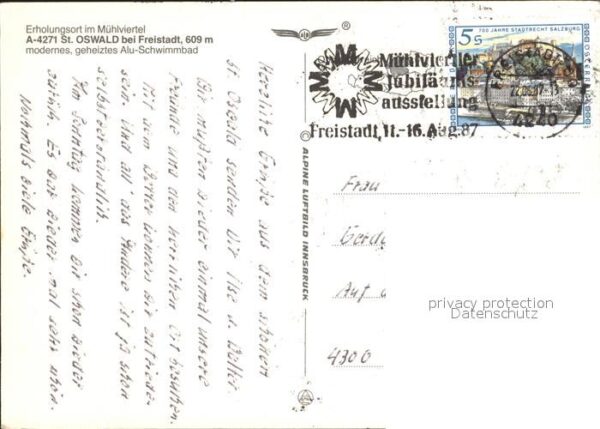 Erholungsort im Mühlviertel
A-4271 St. OSWALD bei Freistadt, 609 m
modernes, geheiztes Alu-Schwimmbad
Herzliche Grüße aus dem schönen
St. Oswald senden Dir Ilse u.
Wir mußten wieder einmal unsere
Freunde und den herrlichen Ort besuchen.
Mit dem Wetter können wir zufrieden
sein und all' das Andere ist ja schon
selbstverständlich.
Am Sonntag kommen wir schon wieder
zurück. Es war wieder mal sehr schön.
Nochmals viele Grüße.
ALPINE LUFTBILD INNSBRUCK
M M M M
Mühlviertler
Jubiläums-
ausstellung
Freistadt, 11.-16. Aug. 87
5 S
700 JAHRE STADTRECHT SALZBURG
4240
Frau
Gerda
Auf d
4300
privacy protection
Datenschutz